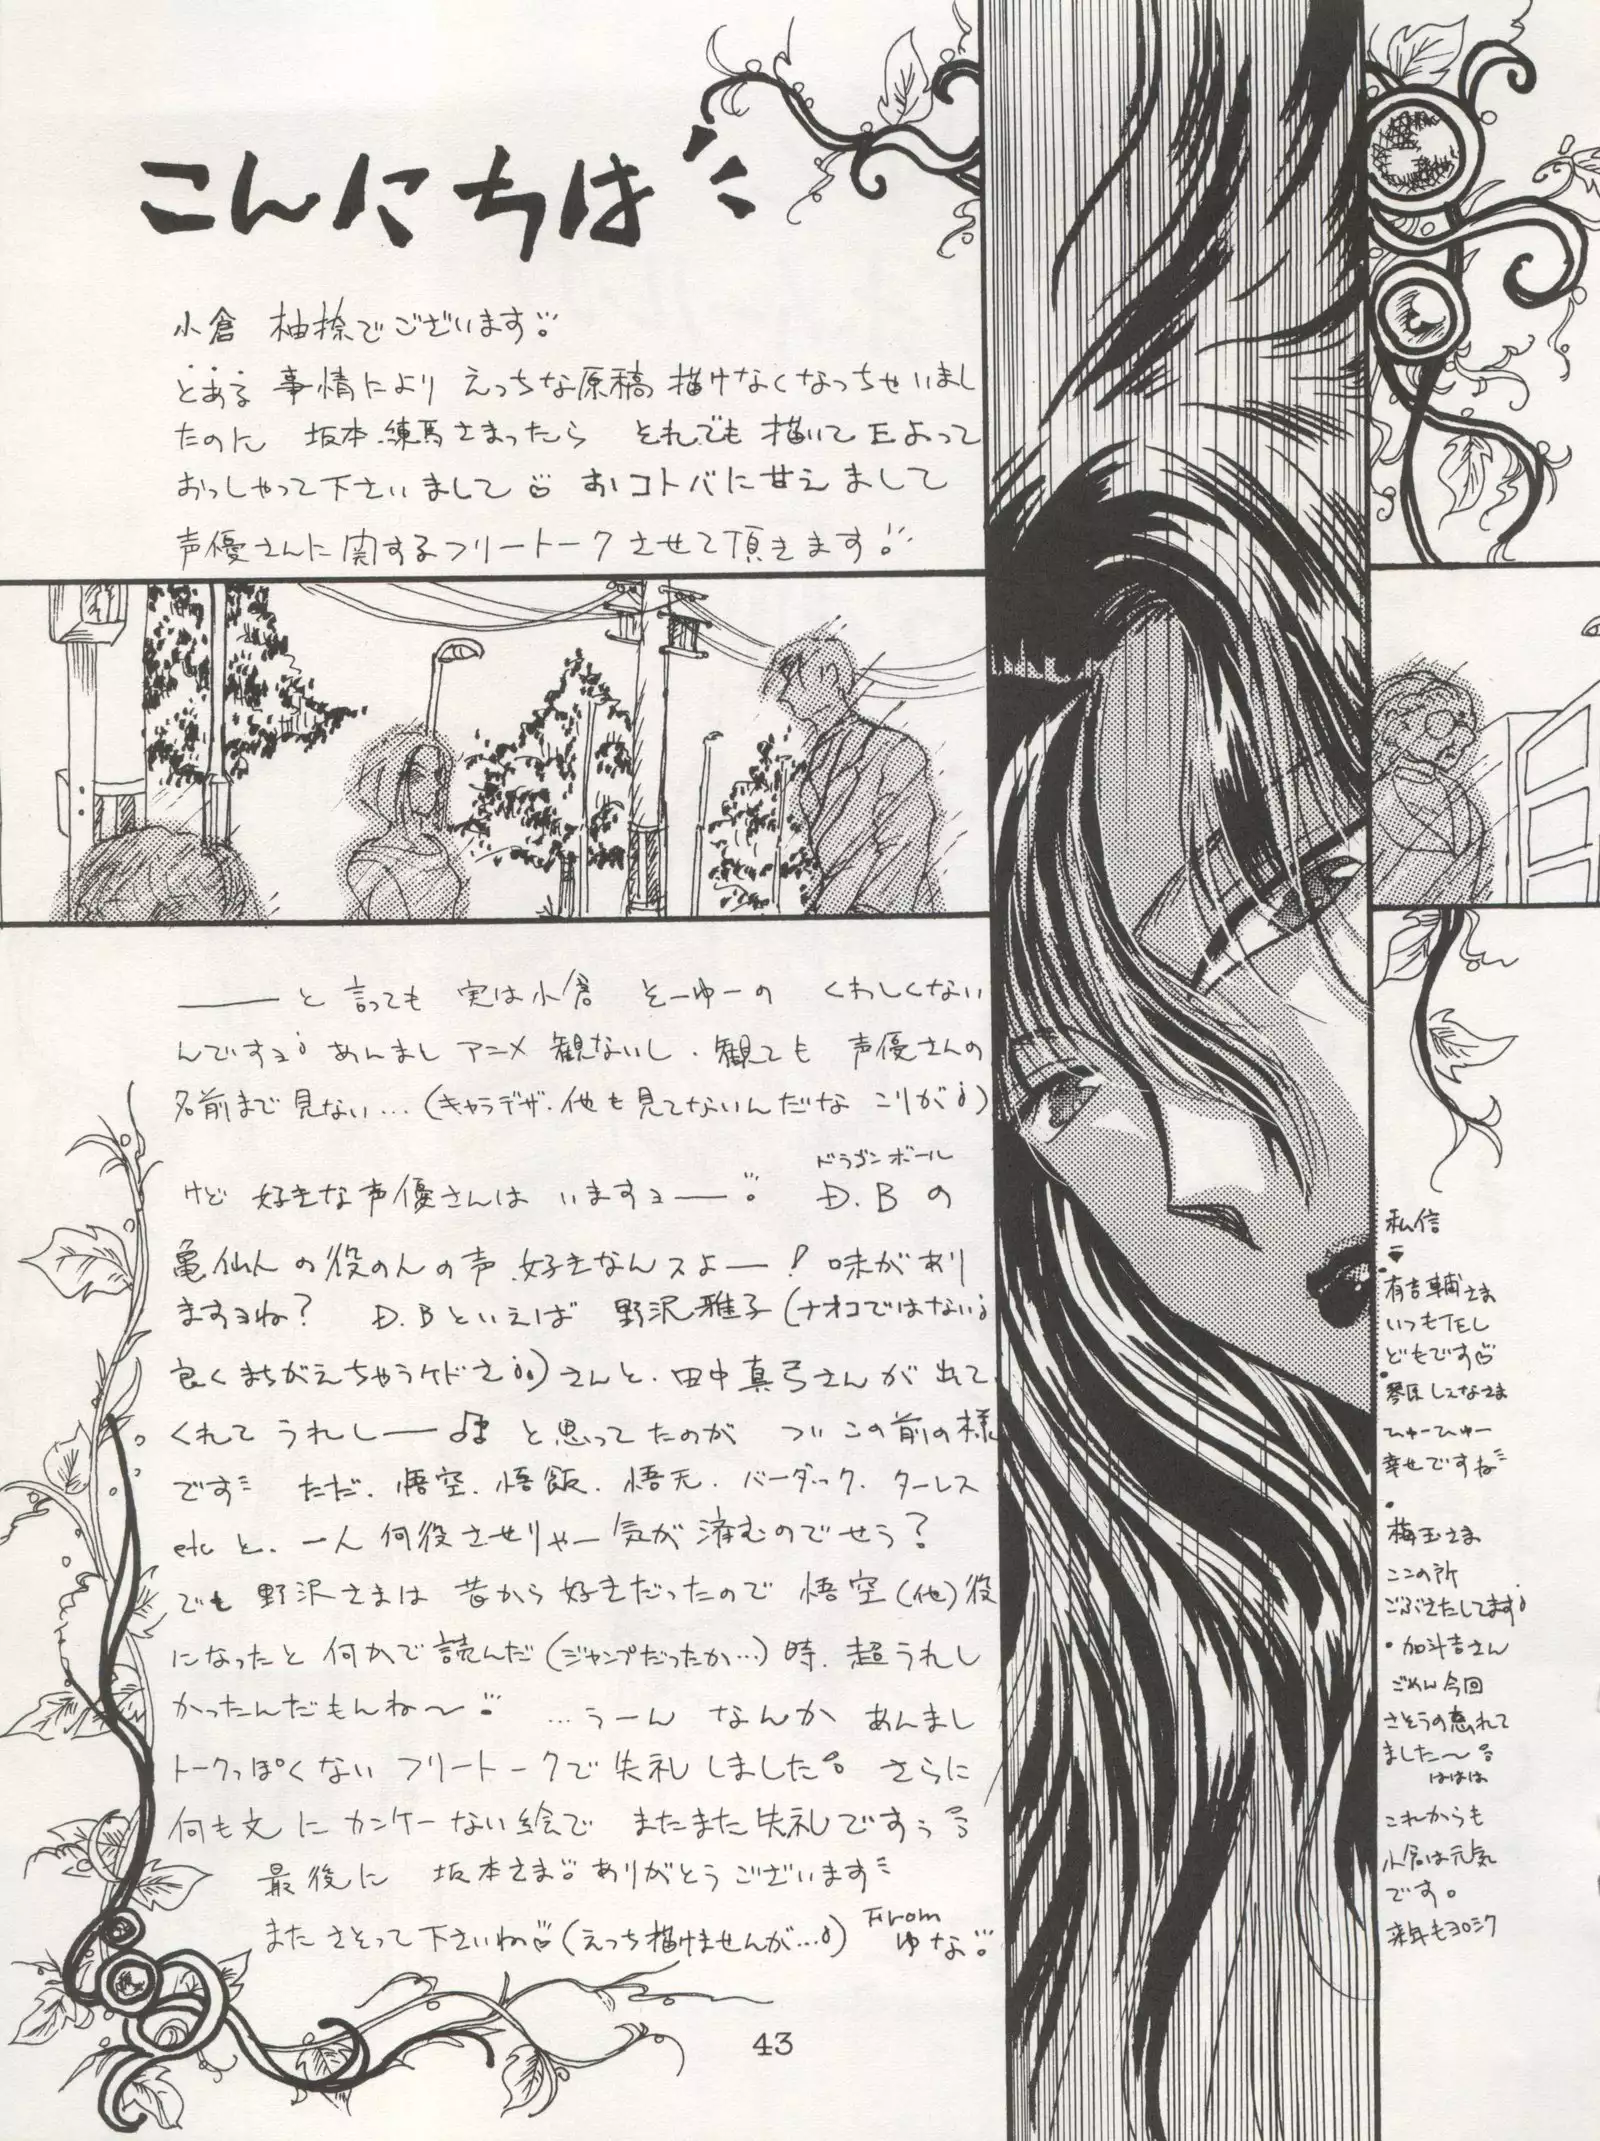 こんにちは
小倉 柚捺でございます
とある 事情により えっちな原稿 描けなくなっちゃいまし
たのに 坂本.練馬さまったら それでも描いてEよって
おっしゃって下さいまして おコトバに甘えまして
声優さんに関するフリートークさせて頂きます
――と言っても 実は小倉 そーゆーの くわしくない
んですョ あんましアニメ観ないし、観ても 声優さんの
名前まで見ない…(キャラデザ.他も見てないんだな こりが)
けど 好きな声優さんは いますョー
ドラゴンボール
D.Bの
亀仙人の役の人の声、好きなんスよー!味があり
ますョね? D.Bといえば 野沢雅子(ナオコではない
良くまちがえちゃうケドさ)さんと、田中真弓さんが出て
くれて うれしー♫ と思ってたのが つい この前の様
です ただ、悟空、悟飯、悟天、バーダック、ターレス
etcと、一人何役させりゃー気が済むのでせう?
でも 野沢さまは 昔から好きだったので 悟空(他)役
になったと何かで読んだ(ジャンプだったか…)時、超うれし
かったんだもんね〜 …うーん なんか あんまし
トークっぽくないフリートークで失礼しました さらに
何も文にカンケーない絵で またまた失礼ですぅ
最後に 坂本さま ありがとうございます
またさそって下さいね(えっち描けませんが…)
From
ゆな
私信
・有吉輔さま
いつもTEL
どもです
・琴原しえなさま
ひゅーひゅー
幸せですね
・梅玉さま
ここの所
ごぶさたしてます
・加斗吉さん
ごめん今回
さそうの忘れて
ました〜
ははは
これからも
小倉は元気
です。
来年もヨロシク
43